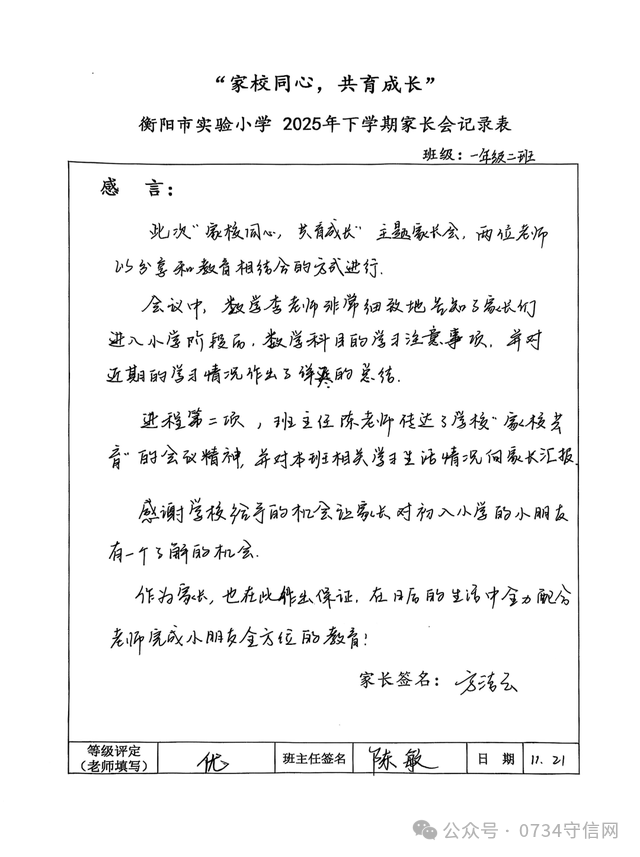 “家校同心，共育成长”
衡阳市实验小学 2025年下学期家长会记录表
班级：一年级二班
感 言：
此次“家校同心，共育成长”主题家长会，两位老师
以分享和教育相结合的方式进行.
会议中，数学李老师非常细致地告知了家长们
进入小学阶段后，数学科目的学习注意事项，并对
近期的学习情况作出了详的总结.
进程第二项，班主任陈老师传达了学校“家校共
育”的会议精神，并对本班相关学习生活情况向家长汇报.
感谢学校给予的机会让家长对初入小学的小朋友
有一个了解的机会.
作为家长，也在此作出保证，在日后的生活中全力配合
老师完成小朋友全方位的教育！
家长签名：方洁云
等级评定
（老师填写） 优 班主任签名 陈敏 日 期 11.21
公众号 · 0734守信网